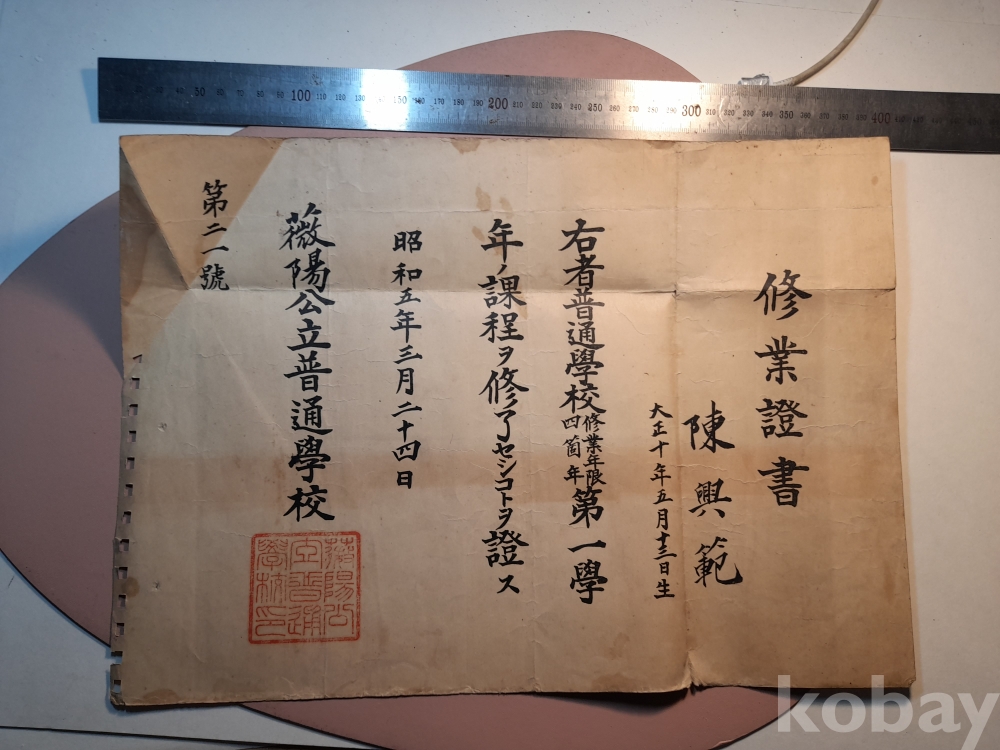 修業證書
陳興範
大正十年五月十三日生
右者普通學校修業年限四箇年第一學
年ノ課程ヲ修了セシコトヲ證ス
昭和五年三月二十四日
薇陽公立普通學校
薇陽公立普通學校印
第二一號
50 100 150 200 250 300 350 400
kobay